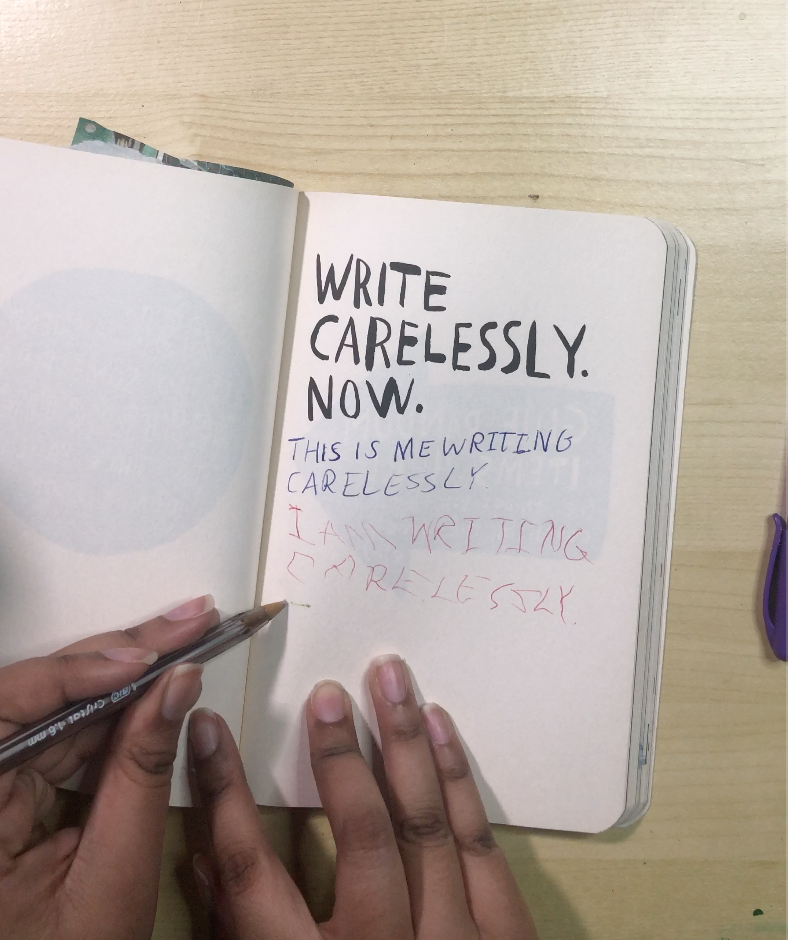 WRITE
CARELESSLY.
NOW.
THIS IS ME WRITING
CARELESSLY.
I AM WRITING
CARELESSLY.
BIC Cristal 1.6 mm